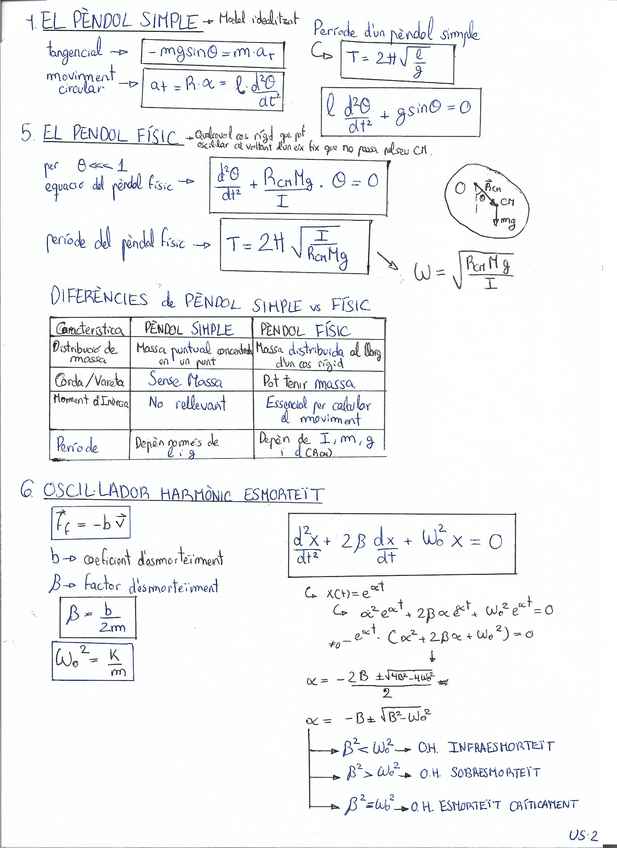 4. EL PÈNDOL SIMPLE → Model idealitzat
tangencial → -mg sinθ = m·aT
moviment circular → aT = R·α = l·d²θ/dt²
Període d'un pèndol simple
T = 2π√(l/g)
l d²θ/dt² + g sinθ = 0
5. EL PENDOL FÍSIC → Qualsevol cos rígid que pot
oscil·lar al voltant d'un eix fix que no passa pel seu CM.
per θ <<< 1
equació del pèndol físic → d²θ/dt² + RCM Mg/I · θ = 0
O RCM
θ CM
mg
període del pèndol físic → T = 2π√(I/RCM Mg)
ω = √(RCM Mg/I)
DIFERÈNCIES de PÈNDOL SIMPLE vs FÍSIC
Característica PÈNDOL SIMPLE PÈNDOL FÍSIC
Distribució de massa Massa puntual concentrada en un punt Massa distribuida al llarg d'un cos rígid
Corda/Vareta Sense Massa Pot tenir massa
Moment d'Inèrcia No rellevant Essencial per calcular el moviment
Període Depèn només de l i g Depèn de I, m, g i d(RCM)
6. OSCIL·LADOR HARMÒNIC ESMORTEÏT
Ff = -b v
b → coeficient d'esmorteïment
β → factor d'esmorteïment
β = b/2m
ω0² = K/m
d²x/dt² + 2β dx/dt + ω0² x = 0
x(t) = e^αt
α² e^αt + 2βα e^αt + ω0² e^αt = 0
≠0 e^αt · (α² + 2βα + ω0²) = 0
α = -2β ± √(4β² - 4ω0²) / 2
α = -β ± √(β² - ω0²)
β² < ω0² → O.H. INFRAESMORTEÏT
β² > ω0² → O.H. SOBRAESMORTEÏT
β² = ω0² → O.H. ESMORTEÏT CRÍTICAMENT
U5:2